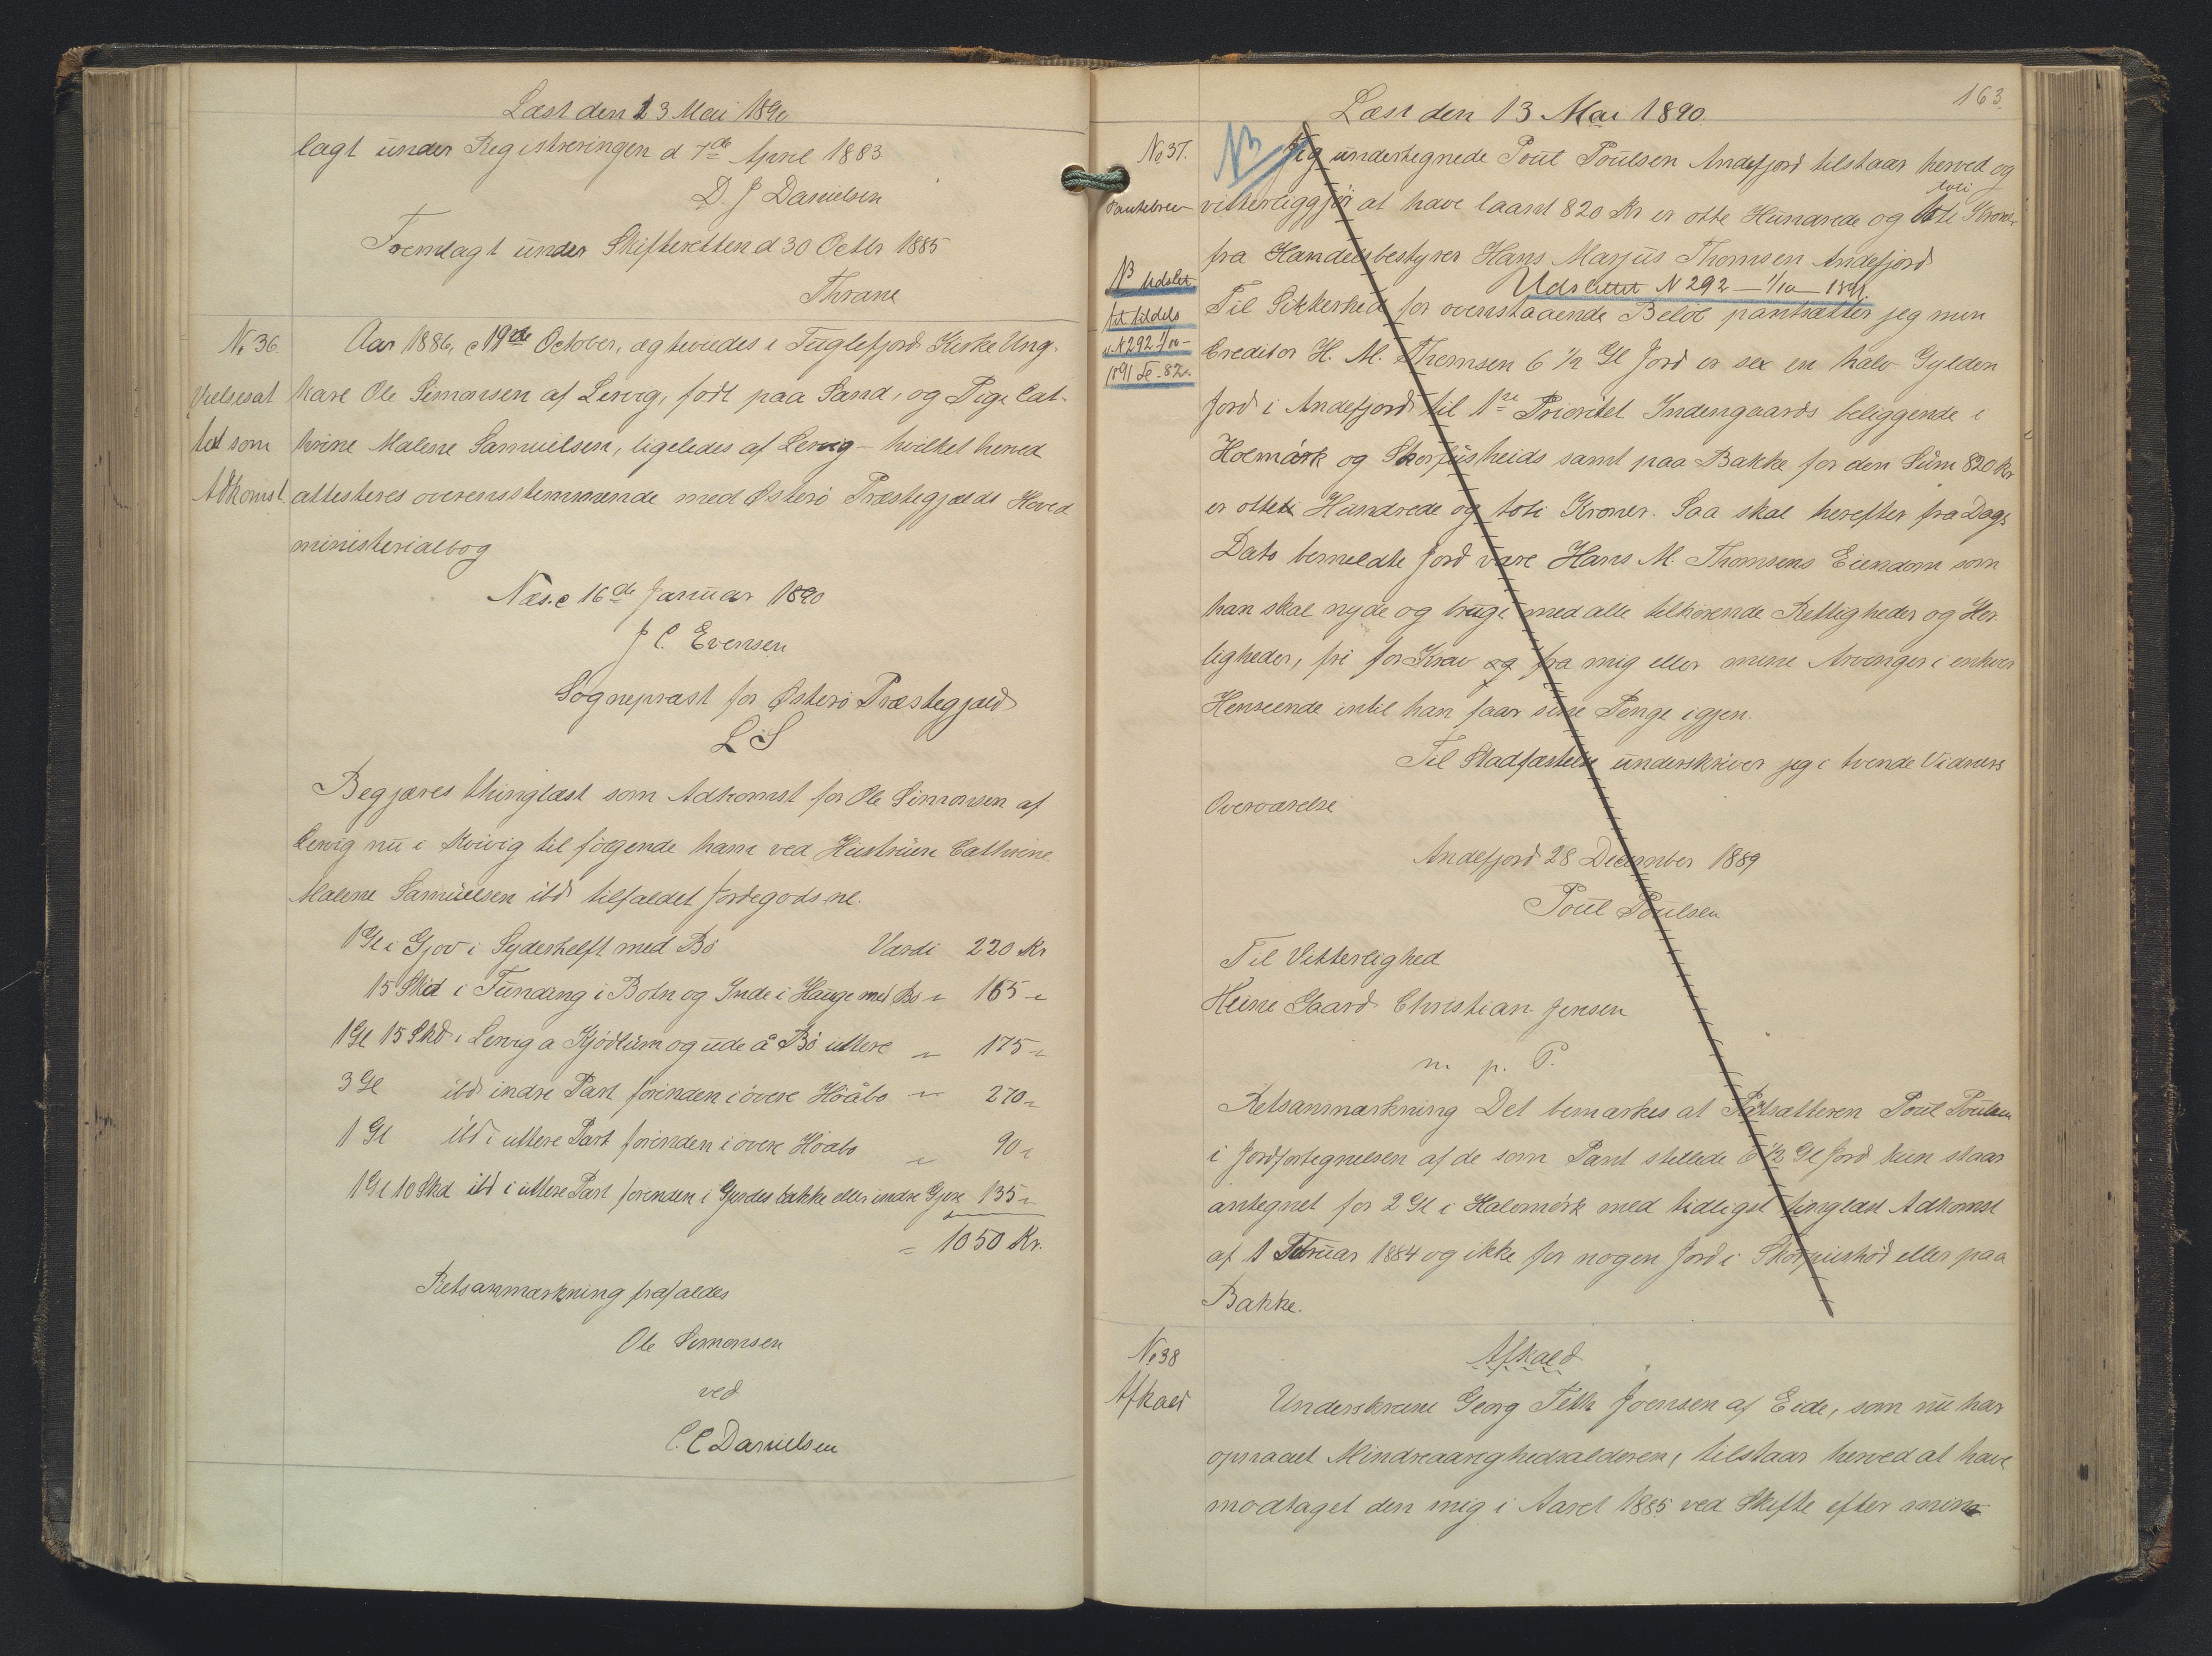 Læst den 13 Mai 1890
lagt under Registreringen d 7de April 1883
D. J Danielsen
Fremlagt under Skifteretten d 30 Octbr 1885
Thrane
No 36.
Vielsesat
tet som
Adkomst
Aar 1886, d 19de October, ægteviedes i Fuglefjord Kirke Ung-
karl Ole Simonsen af Lervig, født paa Sand, og Pige Cat-
hrine Malene Samuelsen, ligeledes af Lervig – hvilket herved
attesteres overensstemmende med Østerø Præstegjælds Hoved
ministerialbog
Næs. d 16de Januar 1890
J C. Evensen
Sognepræst for Østerø Præstegjæld
L S
Begjæres thinglæst som Adkomst for Ole Simonsen af
Lervig nu i Kvivig til følgende ham ved Hustruen Cathrine
Malene Samuelsen ibd tilfaldet Jordegods nl.
1 Gl i Gjov i Syderhelft med Bø Værdi 220 Kr
15 Skd i Funding i Botn og Inde i Hauge med Bø " 165 "
1 Gl 15 Skd i Lervig a Kjødlum og ude å Bø uttere " 175 "
3 Gl ibd indre Part forinden i øvere Høåbø " 270 "
1 Gl ibd i uttere Part forinden i øvere Høabø " 90 "
1 Gl 10 Skd ibd i uttere Part forinden i Gjerdes bakke eller indre Gjere 135 "
= 1050 Kr.
Retsanmærkning frafaldes
Ole Simonsen
ved
C. C Danielsen
163.
Læst den 13 Mai 1890.
No 37.
Pantebrev
NB Udslet
tet tildels
v. N 292 1/10 –
1891 Fo. 82.
NB
Jeg undertegnede Poul Poulsen Andefjord tilstaar herved og
vitterliggjør at have laant 820 Kr er otte Hundrede og toti Kroner
toti
fra Handelsbestyrer Hans Marjus Thomsen Andefjord
Udslettet N 292 – 1/10 – 1891.
Til Sikkerhed for ovenstaaende Beløb pantsætter jeg min
Creditor H. M. Thomsen 6 1/2 Gl Jord er sex en halv Gylden
Jord i Andefjord til 1ste Prioritet Indengaards beliggende i
Holmørk og Skorpusheids samt paa Bakke for den Sum 820 Kr
er otteti Hundrede og toti Kroner. Saa skal herefter fra Dags
Dato bemeldte Jord være Hans M. Thomsens Eiendom som
han skal nyde og bruge med alle tilhørende Rettigheder og Her-
ligheder, fri for Krav og fra mig eller mine Arvinger i enhver
Henseende intil han faar sine Penge igjen.
Til Stadfæstelse underskriver jeg i tvende Vidners
Overværelse
Andefjord 28 December 1889
Poul Poulsen
Til Vitterlighed
Heine Gaard Christian Jensen
m. p. P.
Retsanmærkning Det bemærkes at Pantsætteren Poul Poulsen
i Jordfortegnelsen af de som Pant stillede 6 1/2 Gl Jord kun staar
antegnet for 2 Gl i Halomørk med tidligst tinglæst Adkomst
af 1 Februar 1884 og ikke for nogen Jord i Skorpushød eller paa
Bakke.
No 38
Afkald
Afkald
Underskrevne Georg Feth Joensen af Eide, som nu har
opnaaet Mindreaarighedsalderen, tilstaar herved at have
modtaget den mig i Aaret 1885 ved Skifte efter min